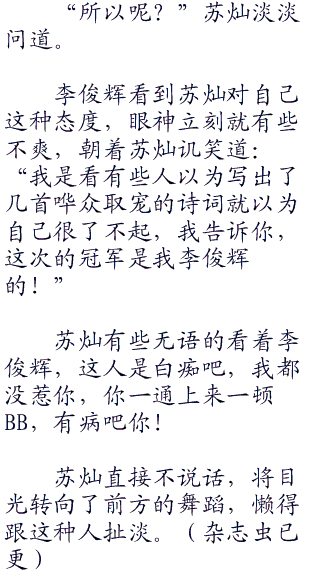 “所以呢？”苏灿淡淡
问道。
李俊辉看到苏灿对自己
这种态度，眼神立刻就有些
不爽，朝着苏灿讥笑道：
“我是看有些人以为写出了
几首哗众取宠的诗词就以为
自己很了不起，我告诉你，
这次的冠军是我李俊辉
的！”
苏灿有些无语的看着李
俊辉，这人是白痴吧，我都
没惹你，你一通上来一顿
BB，有病吧你！
苏灿直接不说话，将目
光转向了前方的舞蹈，懒得
跟这种人扯淡。（杂志虫已
更）